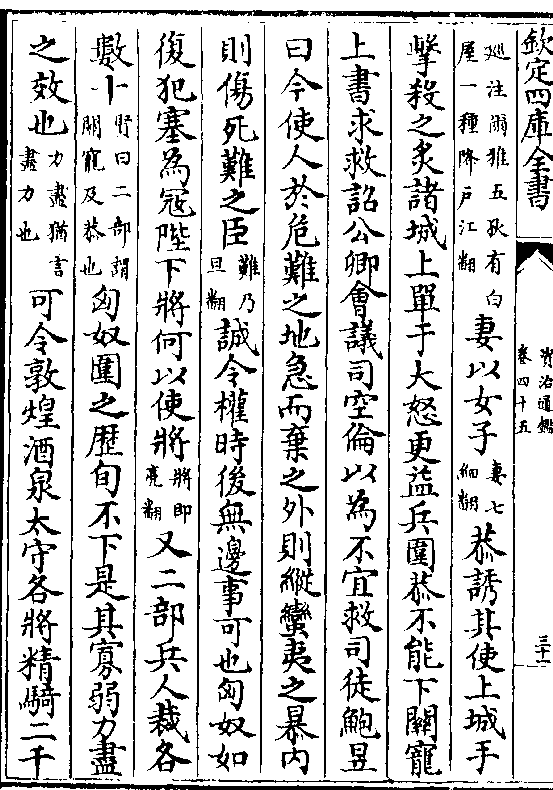 欽定四庫全書
資治通鑑
卷四十五
三十一
廵注爾雅五狄有白屋一種降戸江翻妻以女子妻七細翻恭誘其使上城手
擊殺之炙諸城上單于大怒更益兵圍恭不能下關寵
上書求救詔公卿會議司空倫以為不宜救司徒鮑昱
曰今使人於危難之地急而棄之外則縱蠻夷之暴内
則傷死難之臣難乃旦翻誠令權時後無邊事可也匈奴如
復犯塞為寇陛下將何以使將將即亮翻又二部兵人裁各
數十賢曰二部謂關寵及恭也匈奴圍之歷旬不下是其寡弱力盡
之效也力盡猶言盡力也可令敦煌酒泉太守各將精騎二千